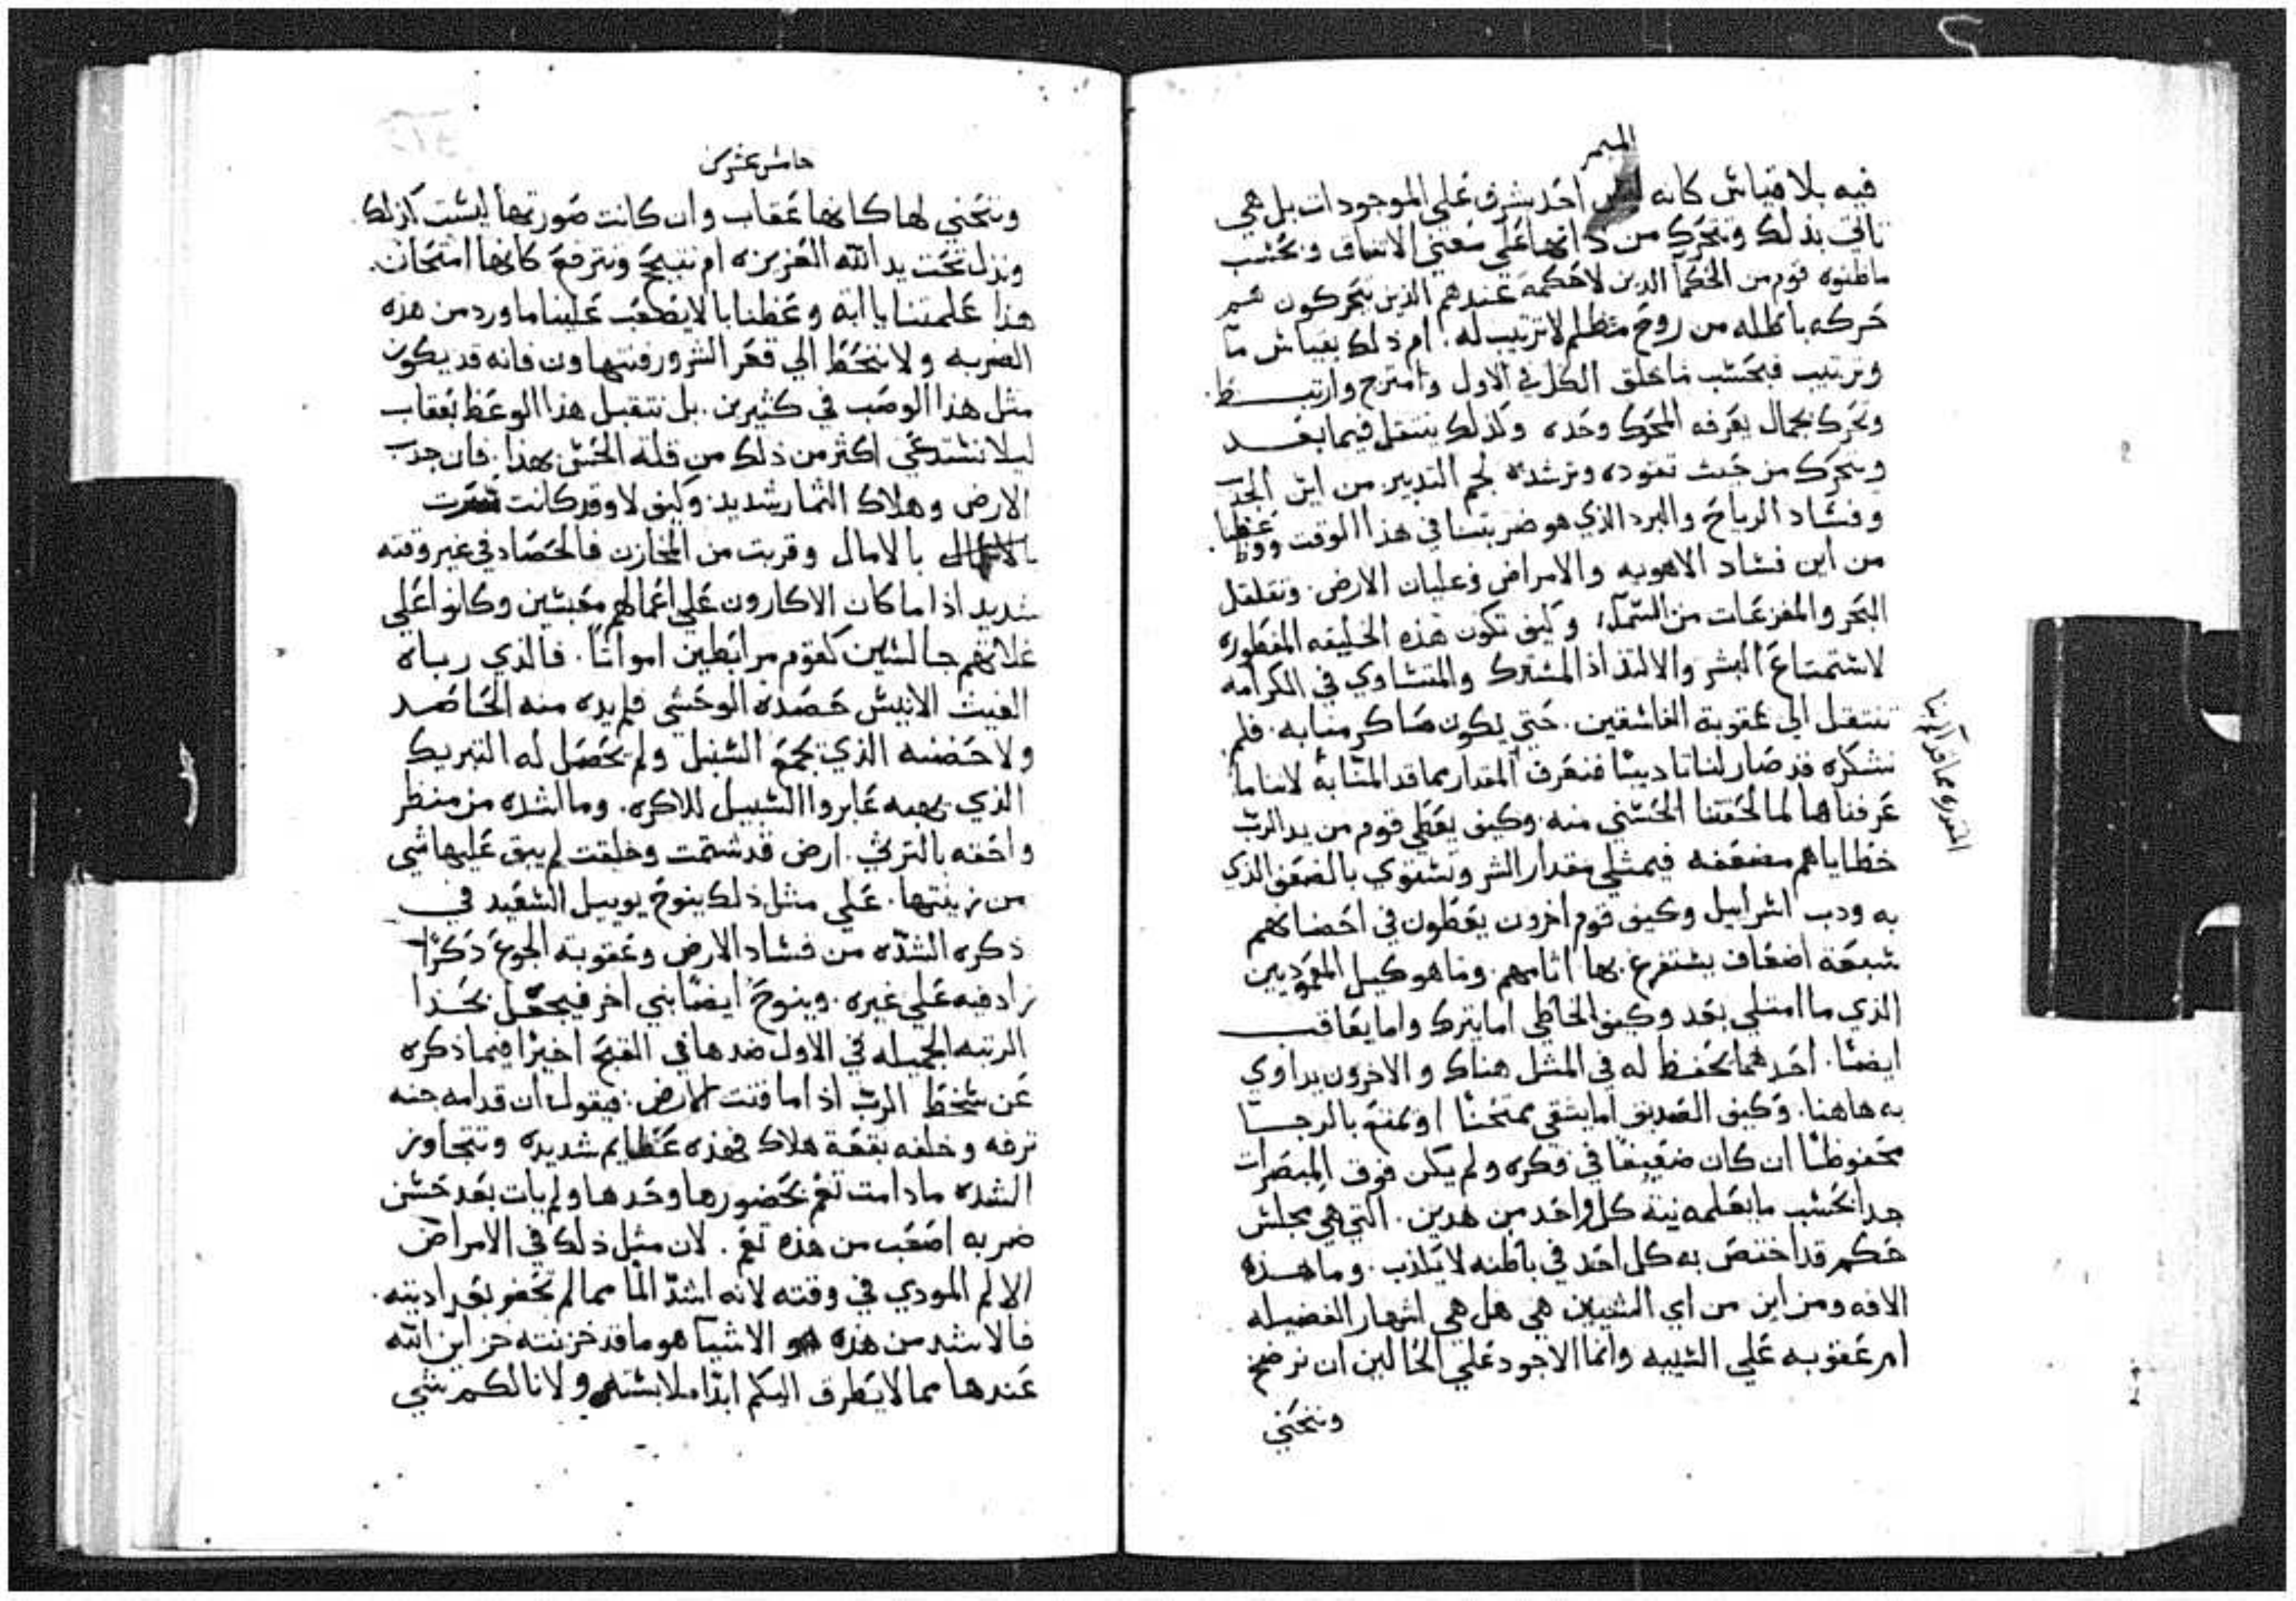 الميمر
فيه بلا قياس كانه ليس احد يشرف علي الموجودات بل هي
تاتي بذلك وتتحرك من ذاتها علي معني الاتفاق وبحسب
ماظنوه قوم من الحكما الدين لاحكمة عندهم الذين يتحركون هم
حركه باطله من روح مظلم لاترتيب له. ام ذلك بقياس ما
وترتيب فبحسب ماخلق الكل في الاول وامتزج وارتبـــط.
وتحرك بجمال يعرفه المحرك وحده ولذلك يتنقل فيما بعـــد
ويتحرك من حيث تقوده وترشده لجم التدبير من اين الجدب
وفساد الرياح والبرد الذي هو ضربتنا في هذا الوقت ووعظنا.
من اين فساد الاهويه والامراض وغليان الارض. وتقلقل
البحر والمفزعات من السماء. وكيف تكون هذه الخليقه المفطوره
لاستمتاع البشر والالتذاذ المشترك والمتساوي في الكرامه
تنتقل الي عقوبة المنافقين. حتي يكون
نشكره قد صار لنا تاديبا فنعرف المقدار
عرفناها لما لحقتنا الحسني منه. وكيف يعطي قوم من يد الرب
خطاياهم مضعفه فيمتلي مقدار الشر ونستوي بالضعف الذي
به ودب اسراييل وكيف قوم اخرون يعطون في احضانهم
سبعة اضعاف يستفرغ بها اثامهم. وما هو كيل الاموريين
الذي ما امتلي بعد وكيف الخاطي اما يترك واما يعاقب
ايضا. احدهما يحفظ له في المثل هناك والاخرون يداوي
به هاهنا. وكيف الصديق اما يشقي ممتحنا او يمتع بالرجا
محفوظا ان كان ضعيفا في فكره ولم يكن فوق المبصرات
جدا بحسب ما يعلمه نية كل واحد من هدين. التي هي مجلس
حكم قد اختص به كل احد في باطنه لا يكذب. وما هـــذه
الافه ومن اين من اي السببين هي هل هي اشهار الفضيله
ام عقوبه علي السيه وانما الاجود علي الحالين ان نرضخ
وننحني
حامس عشر
وننحني لها كانها عقاب وان كانت صورتها ليست كذلك
وندل تحت يد الله العزيزه ام نتبجح ونترفع كانها امتحان.
هذا علمتنا يا ابه وعظنا بالا يصعب علينا ما ورد من هذه
الضربه ولا ننحط الي قعر الشرور فنتهاون فانه قد يكون
مثل هذا الوصب في كثيرين. بل نتقبل هذا الوعظ بعقاب
ليلا نستدعي اكثر من ذلك من قلة الحس بهذا. فان جدب
الارض وهلاك الثمار شديد. وكيف لا وقد كانت
بالامال وقربت من المخازن فالحصاد في غير وقته
شديد اذا ما كان الاكارون علي اعمالهم معبسين وكانوا علي
غلاتهم جالسين كقوم مرابطين امواتا. فالذي رباه
الغيث الانيس حصده الوحشي فلم يده منه الحاصـــد
ولا حضنه الذي يجمع السنبل ولم يحصل له التبريك
الذي يهبه عابروا السبيل للاكره. وما اشده من منظر
واحقه بالترثي. ارض قد شتمت وحلقت لم يبق عليها شي
من زينتها. علي مثل ذلك ينوح يوييل السعيد في
ذكره الشده من فساد الارض وعقوبة الجوع ذكرا
زاد فيه علي غيره. وينوح ايضا نبي اخر فيجعل بحذا
الرتبه الجميله في الاول ضدها في القبح اخيرا فيما ذكره
عن سخط الرب اذا ما فتت الارض. فيقول ان قدامه جنه
ترفه وخلفه بقعة هلاك فهذه عظايم شديده وتتجاوز
الشده مادامت تغم بحضورها وحدها ولم يات بعد حس
ضربه اصعب من هذه تغم. لان مثل ذلك في الامراض
الالم المودي في وقته لانه اشد الما مما لم تحضر بعد اديته.
فالاشد من هذه الاشيا هو ما قد خزنته خزاين الله
عندها مما لا يطرق اليكم ابدا ملابسته ولا نالكم شي